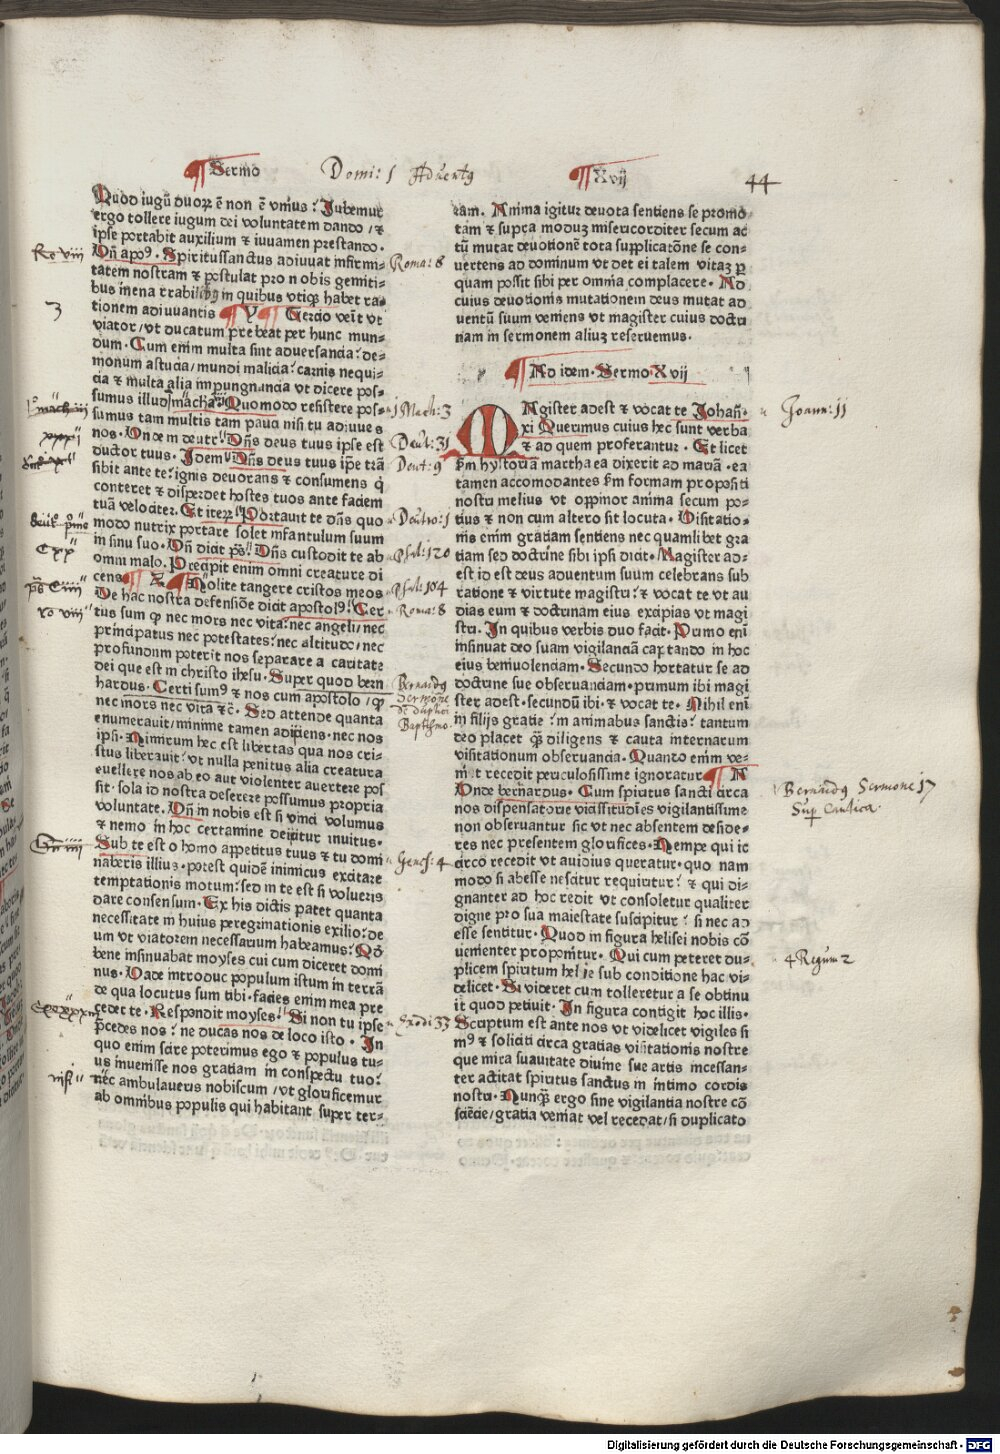 Sermo
Domi: 1 Aduentꝰ
Xvij
44
Quod iugū duoꝝ ē non ē vnius? Iubemur
ergo tollere iugum dei voluntatem dando / ⁊
ipse portabit auxilium ⁊ iuuamen prestando.
Vñ apoꝰ. Spiritussanctus adiuuat infirmi-
tatem nostram ⁊ postulat pro nobis gemiti-
bus inenarrabilibꝰ in quibus vtiqꝫ habet ra-
tionem adiuuantis ¶ V ¶ Tercio veīt vt
viator / vt ducatum prebeat per hunc mun-
dum. Cum enim multa sint aduersancia? de-
monum astucia / mundi malicia? carnis nequi-
cia ⁊ multa alia inpungnancia vt dicere pos-
sumus illud machaꝰ. Quomodo resistere pos-
sumus tam multis tam pauci nisi tu adiuues
nos. Vnde in deutrꝰ. Dñs deus tuus ipse est
ductor tuus. Idem. Dñs deus tuus ip̄e trā
sibit ante te? ignis deuorans ⁊ consumens q̄
conteret ⁊ disperdet hostes tuos ante faciem
tuā velociter. Et iteꝝ. Portauit te dñs quo
modo nutrix portare solet infantulum suum
in sinu suo. Vñ dicit p̄s. Dñs custodit te ab
omni malo. Precipit enim omni creature di
cens ¶ Z ¶ Nolite tangere cristos meos
De hac nostra defensiōe dicit apostolꝰ. Cer
tus sum ꝙ nec mors nec vita? nec angeli / nec
principatus nec potestates? nec altitudo / nec
profundum poterit nos separare a caritate
dei que est in christo ihesu. Super quod bern
hardus. Certi sumꝰ ⁊ nos cum apostolo / ꝙ
nec mors nec vita ⁊c̄. Sed attende quanta
enumerauit / minime tamen adijciens. nec nos
ipsi. Nimirum hec est libertas qua nos cri-
stus liberauit? vt nulla penitus alia creatura
euellere nos ab eo aut violenter auertere pos
sit. sola id nostra deserere possumus propria
voluntate. Vñ in nobis est si vinci volumus
⁊ nemo in hoc certamine deijcitur inuitus.
Sub te est o homo appetitus tuus ⁊ tu domi
naberis illius. potest quidē inimicus excitare
temptationis motum? sed in te est si volueris
dare consensum. Ex his dictis patet quanta
necessitate in huius peregrinationis exilio? de
um vt viatorem necessarium habeamus? Qd̄
bene insinuabat moyses cui cum diceret domi
nus. Vade introduc populum istum in terrā
de qua locutus sum tibi. facies enim mea pre
cedet te. Respondit moyses. Si non tu ipse
p̄cedes nos? ne ducas nos de loco isto. In
quo enim scire poterimus ego ⁊ populus tu-
us inuenisse nos gratiam in conspectu tuo?
nec ambulaueris nobiscum / vt glorificemur
ab omnibus populis qui habitant super ter-
Ro viij
3
xxxi
Cxx
p̄s Ciiij
ro viij
Gn̄ iiij
nisi
Roma: 8
1 Mach: 3
Deut: 31
Deut: 9
Deutro: 1
Psal: 120
Psal: 104
Roma: 8
Bernardꝰ
Sermone
de duplici
Baptismo
Genes: 4
Exodi 33
ram. Anima igitur deuota sentiens se promo
tam ⁊ supꝛa moduꝫ misericorditer secum ac
tū mutat deuotionē tota supplicatōne se con-
uertens ad dominum vt det ei talem vitaꝫ ꝑ
quam possit sibi per omnia complacere. Ad
cuius deuotionis mutationem deus mutat ad
uentū suum veniens vt magister cuius doctri
nam in sermonem aliuꝫ reseruemus.
¶ Ad idem. Sermo Xvij
MAgister adest ⁊ vocat te Iohañ.
xi Querimus cuius hec sunt verba
⁊ ad quem proferantur. Et licet
ẜm hystoriā martha ea dixerit ad mariā. ea
tamen accomodantes ẜm formam propositi
nostri melius vt oppinor anima secum po-
tius ⁊ non cum altero sit locuta. Visitatio-
nis enim gratiam sentiens nec quamlibet gra
tiam sed doctrine sibi ipsi dicit. Magister ad-
est id est deus aduentum suum celebrans sub
ratione ⁊ virtute magistri? ⁊ vocat te vt au
dias eum ⁊ doctrinam eius excipias vt magi
stri. In quibus verbis duo facit. Primo eni
insinuat deo suam vigilanciā captando in hoc
eius beniuolenciam. Secundo hortatur se ad
doctrine sue obseruanciam. primum ibi magi
ster adest. secundū ibi. ⁊ vocat te. Nihil enī
in filijs gratie? in animabus sanctis? tantum
deo placet qꝫ̄ diligens ⁊ cauta internarum
visitationum obseruancia. Quando enim ve-
nit recedit periculosissime ignoratur ¶ A
Vnde bernardus. Cum spiritus sancti circa
nos dispensatorie vicissitudīes vigilantissime
non obseruantur fit vt nec absentem deside-
res nec presentem glorifices. Nempe qui ic
circo recedit vt auidius queratur. quo nam
modo si abesse nescitur requiritur? ⁊ qui di-
gnanter ad hoc redit vt consoletur qualiter
digne pro sua maiestate suscipitur? si nec ad
esse sentitur. Quod in figura helisei nobis cō
uenienter proponitur. Qui cum peteret du-
plicem spiritum helie sub conditione hac vi-
delicet. Si videret cum tolleretur a se obtinu
it quod petiuit. In figura contigit hoc illis.
Scriptum est ante nos vt videlicet vigiles si
mꝰ ⁊ soliciti circa gratias visitationis nostre
que mira suauitate diuine sue artis incessan-
ter actitat spiritus sanctus in intimo cordis
nostri. Nunqꝫ̄ ergo sine vigilantia nostre cō
sciēcie / gratia veniat vel recedat / si duplicato
Joann: 11
Bernardꝰ Sermone 17
Sup Cantica
4 Regum 2
Digitalisierung gefördert durch die Deutsche Forschungsgemeinschaft - DFG